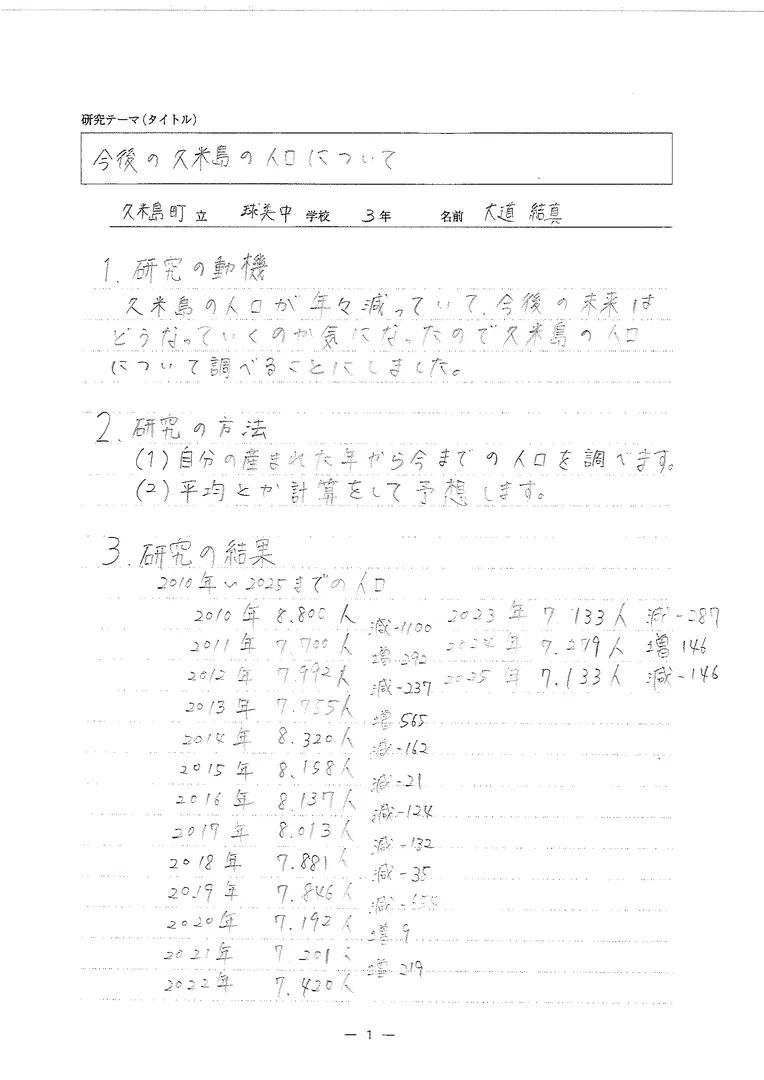 研究テーマ(タイトル)
今後の久米島の人口について
久米島町 立 球美中 学校 3 年 名前 大道 結真
1. 研究の動機
久米島の人口が年々減っていて、今後の未来は
どうなっていくのか気になったので久米島の人口
について調べることにしました。
2. 研究の方法
(1)自分の産まれた年から今までの人口を調べます。
(2)平均とか計算をして予想します。
3. 研究の結果
2010年〜2025までの人口
2010年 8.800人
減-1100
2011年 7.700人
増 292
2012年 7.992人
減-237
2013年 7.755人
増 565
2014年 8.320人
減-162
2015年 8.158人
減-21
2016年 8.137人
減-124
2017年 8.013人
減-132
2018年 7.881人
減-35
2019年 7.846人
減-654
2020年 7.192人
増 9
2021年 7.201人
増 219
2022年 7.420人
2023年 7.133人 減-287
2024年 7.279人 増 146
2025年 7.133人 減-146
— 1 —